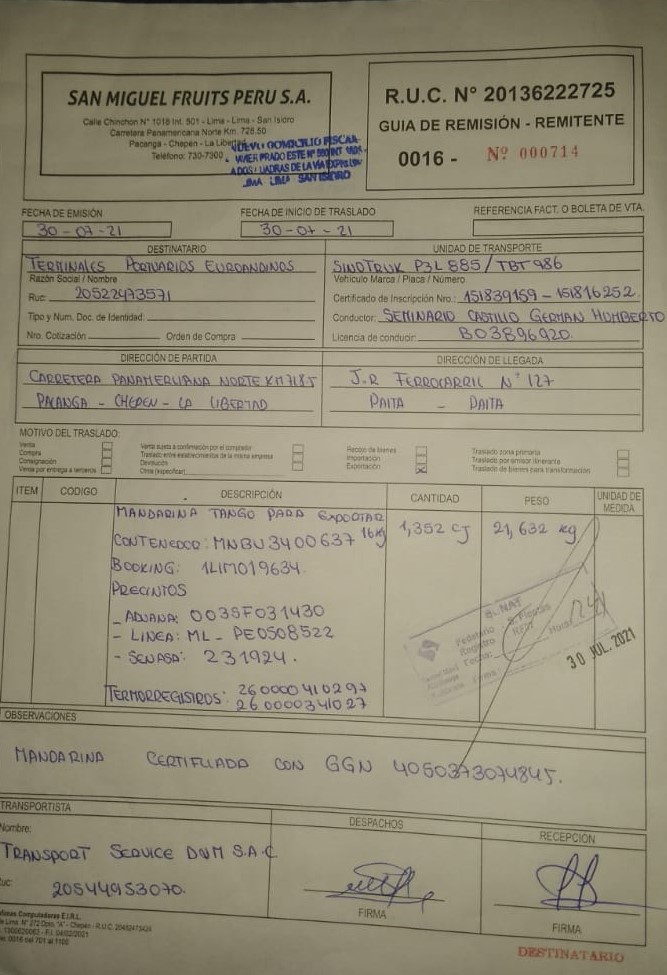 SAN MIGUEL FRUITS PERU S.A.
Calle Chinchon N° 1018 Int. 501 - Lima - Lima - San Isidro
Carretera Panamericana Norte Km. 728.50
Pacanga - Chepen - La Libertad
Teléfono: 730-7300
NUEVO DOMICILIO FISCAL
LIMA LIMA SAN ISIDRO
R.U.C. N° 20136222725
GUIA DE REMISIÓN - REMITENTE
0016 - Nº 000714
FECHA DE EMISIÓN
30-07-21
FECHA DE INICIO DE TRASLADO
30-07-21
REFERENCIA FACT. O BOLETA DE VTA.
DESTINATARIO
TERMINALES PORTUARIOS EUROANDINOS
Razón Social / Nombre
Ruc: 20522473571
Tipo y Num. Doc. de Identidad:
Nro. Cotización: Orden de Compra:
UNIDAD DE TRANSPORTE
SINOTRUK P3L885/TBT986
Vehículo Marca / Placa / Número
Certificado de Inscripción Nro.: 151839159 - 151816252
Conductor: SEMINARIO CASTILLO GERMAN HUMBERTO
Licencia de conducir: B03896920
DIRECCIÓN DE PARTIDA
CARRETERA PANAMERICANA NORTE KM 718.5
PACANGA - CHEPEN - LA LIBERTAD
DIRECCIÓN DE LLEGADA
J.R FERROCARRIL N° 127
PAITA - PAITA
MOTIVO DEL TRASLADO:
Venta
Compra
Consignación
Venta por entrega a terceros
Venta sujeta a confirmación por el comprador
Traslado entre establecimientos de la misma empresa
Devolución
Otros (especificar)
Recojo de bienes
Importación
Exportación X
Traslado zona primaria
Traslado por emisor itinerante
Traslado de bienes para transformación
ITEM CODIGO DESCRIPCIÓN CANTIDAD PESO UNIDAD DE MEDIDA
MANDARINA TANGO PARA EXPORTAR 1,352 CJ 21,632 kg
16kg
CONTENEDOR: MNBU3400637
BOOKING: 1LIM019634
PRECINTOS
- ADUANA: 003SF031430
- LINEA: ML - PE0508522
- SENASA: 231924.
TERMORREGISTROS: 260000410297
260000341027
SUNAT
30 JUL. 2021
OBSERVACIONES
MANDARINA CERTIFICADA CON GGN 4050373074845.
TRANSPORTISTA
Nombre:
TRANSPORT SERVICE DNM S.A.C
Ruc: 20544953070.
DESPACHOS
FIRMA
RECEPCIÓN
FIRMA
DESTINATARIO